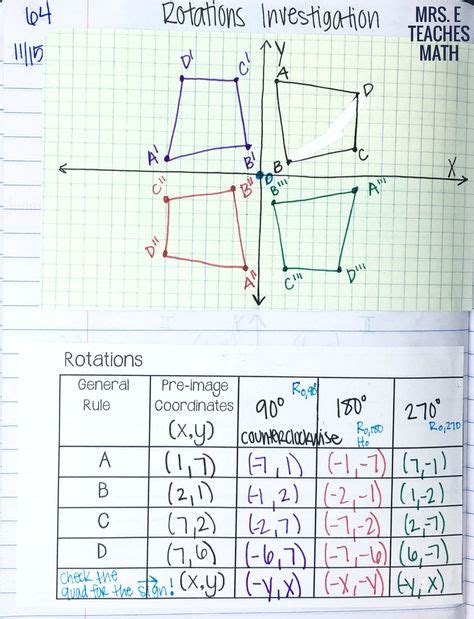 64
11/15
Rotations Investigation
MRS. E
TEACHES
MATH
Y
X
D' C' A D
A' B' B C
C" B" O B''' A'''
D" A" C''' D'''
Rotations
General Rule Pre-image Coordinates (x,y) 90° R0,90° counterclockwise 180° R0,180 H0 270° R0,270
A (1,7) (-7,1) (-1,-7) (7,-1)
B (2,1) (-1,2) (-2,-1) (1,-2)
C (7,2) (-2,7) (-7,-2) (2,-7)
D (7,6) (-6,7) (-7,-6) (6,-7)
check the quad for the sign! → (x,y) (-y,x) (-x,-y) (y,x)